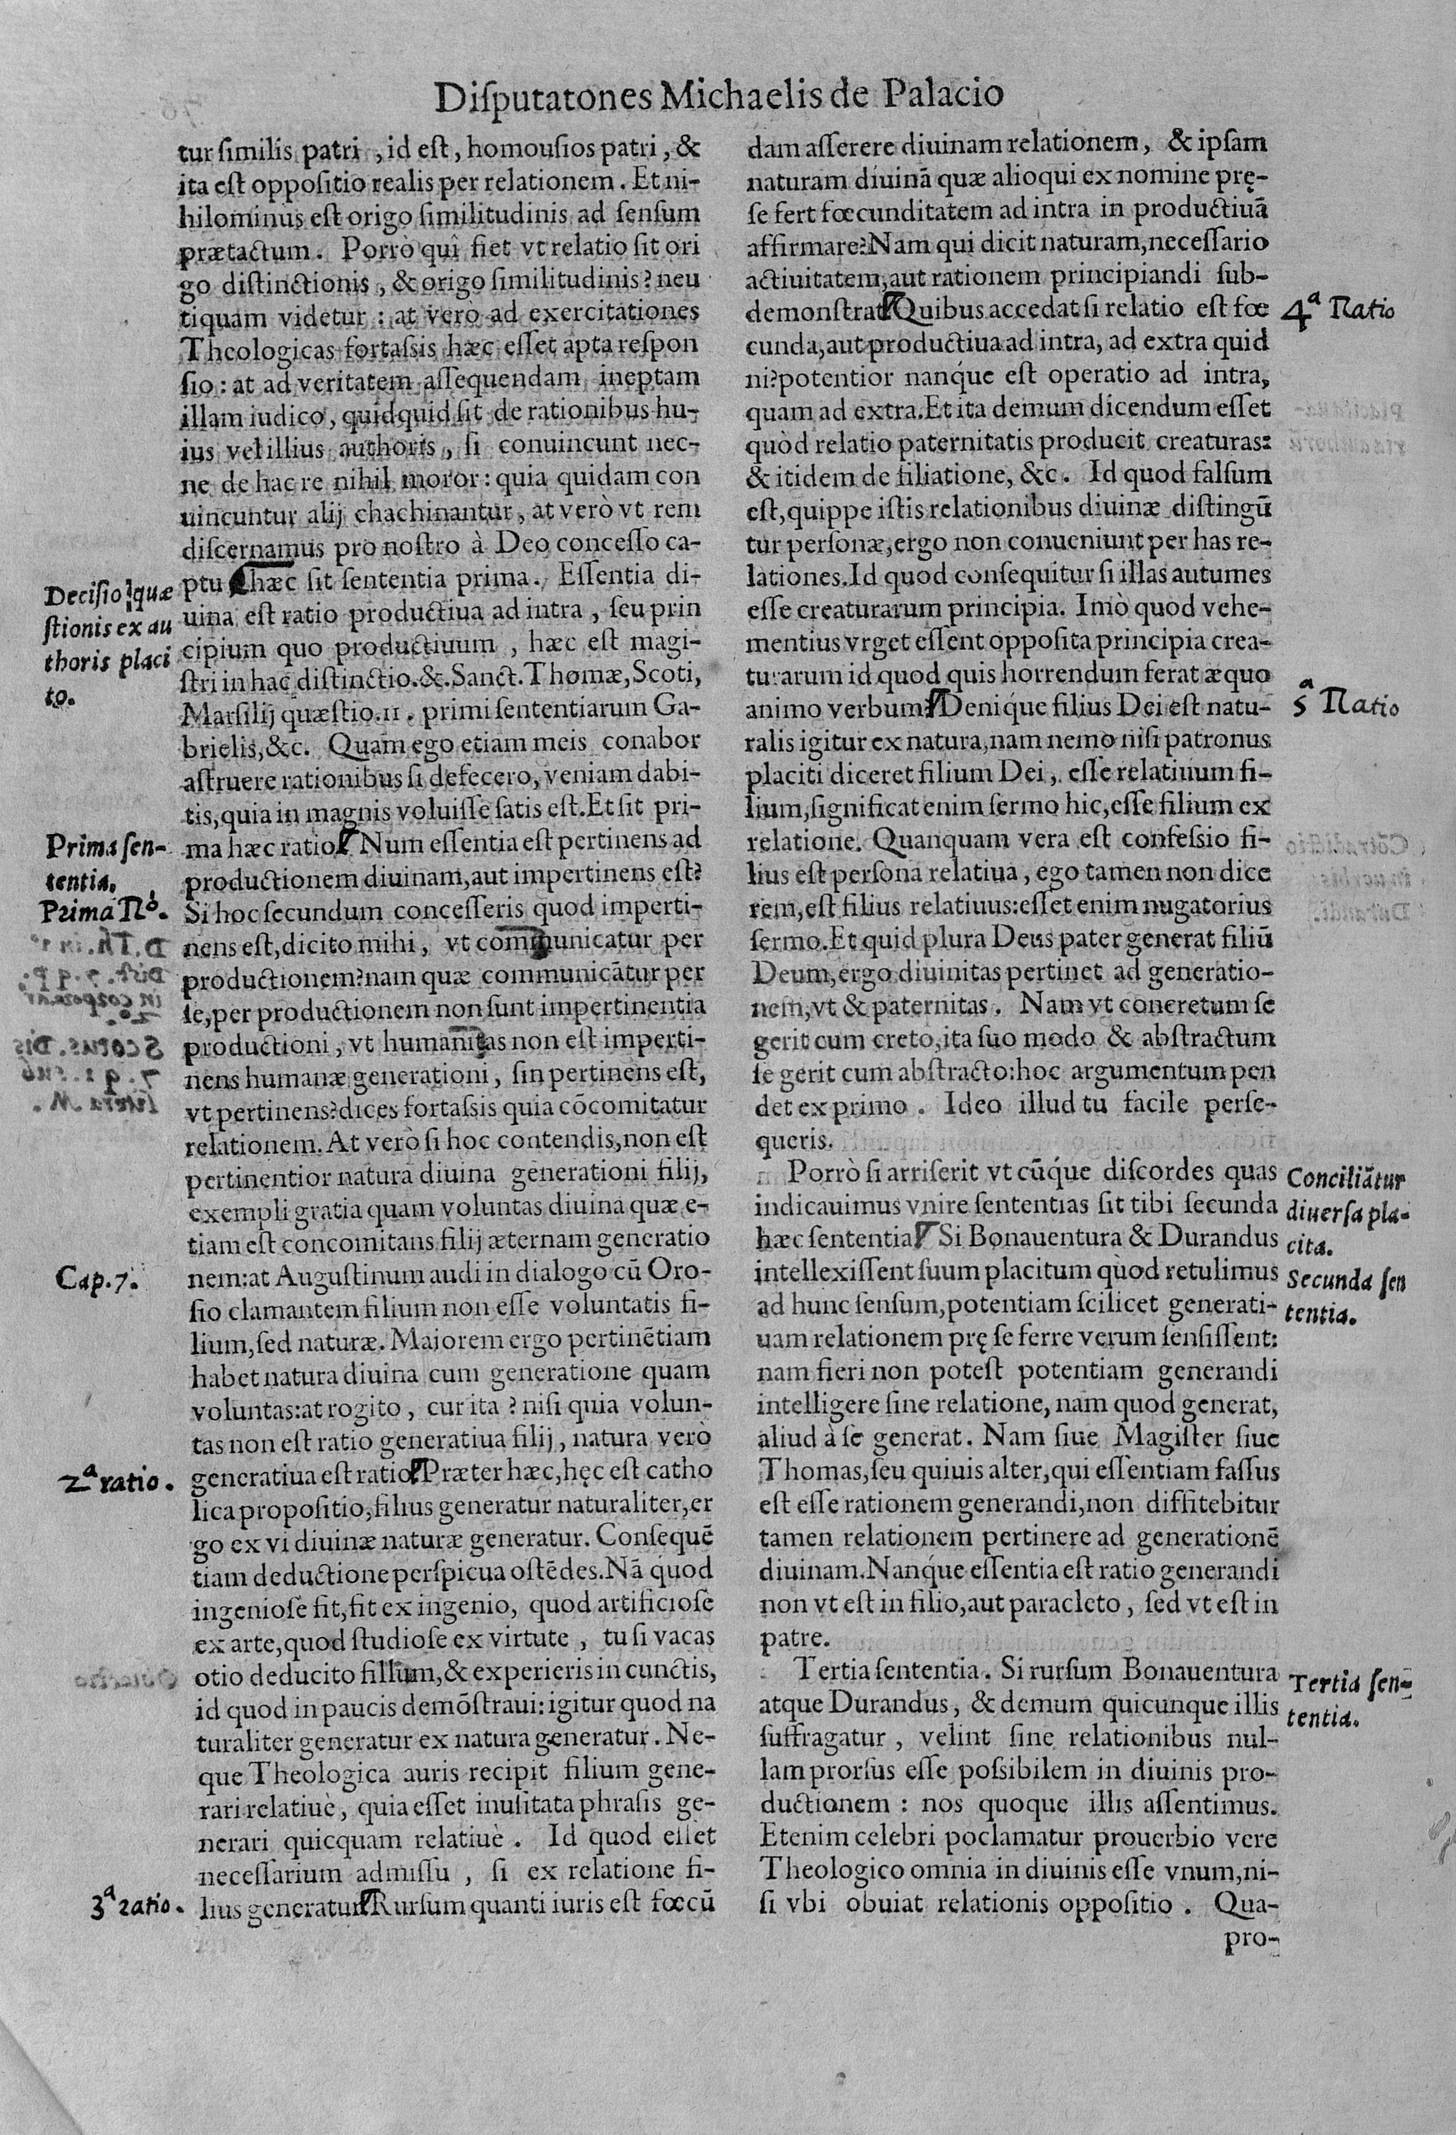 Disputatones Michaelis de Palacio
tur similis patri, id est, homousios patri, &
ita est oppositio realis per relationem. Et ni-
hilominus est origo similitudinis ad sensum
prætactum. Porrò quî fiet vt relatio sit ori
go distinctionis, & origo similitudinis? neu
tiquam videtur: at verò ad exercitationes
Theologicas fortassis hæc esset apta respon
sio: at ad veritatem assequendam ineptam
illam iudico, quidquid sit de rationibus hu-
ius vel illius authoris, si conuincunt nec-
ne de hac re nihil moror: quia quidam con
uincuntur alij chachinantur, at verò vt rem
discernamus pro nostro à Deo concesso ca-
ptu hæc sit sententia prima. Essentia di-
uina est ratio productiua ad intra, seu prin
cipium quo productiuum, hæc est magi-
stri in hac distinctio. &. Sanct. Thomæ, Scoti,
Marsilij quæstio. 11. primi sententiarum Ga-
brielis, &c. Quam ego etiam meis conabor
astruere rationibus si defecero, veniam dabi-
tis, quia in magnis voluisse satis est. Et sit pri-
ma hæc ratio. Num essentia est pertinens ad
productionem diuinam, aut impertinens est?
Si hoc secundum concesseris quod imperti-
nens est, dicito mihi, vt communicatur per
productionem? nam quæ communicãtur per
se, per productionem non sunt impertinentia
productioni, vt humanitas non est imperti-
nens humanæ generationi, sin pertinens est,
vt pertinens? dices fortassis quia cõcomitatur
relationem. At verò si hoc contendis, non est
pertinentior natura diuina generationi filij,
exempli gratia quam voluntas diuina quæ e-
tiam est concomitans filij æternam generatio
nem: at Augustinum audi in dialogo cũ Oro-
sio clamantem filium non esse voluntatis fi-
lium, sed naturæ. Maiorem ergo pertinẽtiam
habet natura diuina cum generatione quam
voluntas: at rogito, cur ita? nisi quia volun-
tas non est ratio generatiua filij, natura verò
generatiua est ratio. Præter hæc, hęc est catho
lica propositio, filius generatur naturaliter, er
go ex vi diuinæ naturæ generatur. Consequẽ
tiam deductione perspicua ostẽdes. Nã quod
ingeniose fit, fit ex ingenio, quod artificiose
ex arte, quod studiose ex virtute, tu si vacas
otio deducito fillum, & experieris in cunctis,
id quod in paucis demõstraui: igitur quod na
turaliter generatur ex natura generatur. Ne-
que Theologica auris recipit filium gene-
rari relatiuè, quia esset inusitata phrasis ge-
nerari quicquam relatiuè. Id quod esset
necessarium admissu, si ex relatione fi-
lius generatur. Rursum quanti iuris est fœcũ
Decisio quæ
stionis ex au
thoris placi
to.
Prima sen-
tentia.
Prima Rᵒ.
Cap. 7.
2ᵃ ratio.
3ᵃ ratio.
dam asserere diuinam relationem, & ipsam
naturam diuinã quæ alioqui ex nomine prę-
se fert fœcunditatem ad intra in productiuã
affirmare? Nam qui dicit naturam, necessario
actiuitatem, aut rationem principiandi sub-
demonstrat. Quibus accedat si relatio est fœ
cunda, aut productiua ad intra, ad extra quid
ni? potentior nanq́ue est operatio ad intra,
quam ad extra. Et ita demum dicendum esset
quòd relatio paternitatis producit creaturas:
& itidem de filiatione, &c. Id quod falsum
est, quippe istis relationibus diuinæ distingũ
tur personæ, ergo non conueniunt per has re-
lationes. Id quod consequitur si illas autumes
esse creaturarum principia. Imò quod vehe-
mentius vrget essent opposita principia crea-
turarum id quod quis horrendum ferat æquo
animo verbum? Deniq́ue filius Dei est natu-
ralis igitur ex natura, nam nemo nisi patronus
placiti diceret filium Dei, esse relatiuum fi-
lium, significat enim sermo hic, esse filium ex
relatione. Quanquam vera est confessio fi-
lius est persona relatiua, ego tamen non dice
rem, est filius relatiuus: esset enim nugatorius
sermo. Et quid plura Deus pater generat filiũ
Deum, ergo diuinitas pertinet ad generatio-
nem, vt & paternitas. Nam vt concretum se
gerit cum creto, ita suo modo & abstractum
se gerit cum abstracto: hoc argumentum pen
det ex primo. Ideo illud tu facile perse-
queris.
Porrò si arriserit vt cũq́ue discordes quas
indicauimus vnire sententias sit tibi secunda
hæc sententia. Si Bonauentura & Durandus
intellexissent suum placitum quòd retulimus
ad hunc sensum, potentiam scilicet generati-
uam relationem prę se ferre verum sensissent:
nam fieri non potest potentiam generandi
intelligere sine relatione, nam quod generat,
aliud à se generat. Nam siue Magister siue
Thomas, seu quiuis alter, qui essentiam fassus
est esse rationem generandi, non diffitebitur
tamen relationem pertinere ad generationẽ
diuinam. Nanq́ue essentia est ratio generandi
non vt est in filio, aut paracleto, sed vt est in
patre.
Tertia sententia. Si rursum Bonauentura
atque Durandus, & demum quicunque illis
suffragatur, velint sine relationibus nul-
lam prorsus esse possibilem in diuinis pro-
ductionem: nos quoque illis assentimus.
Etenim celebri poclamatur prouerbio vere
Theologico omnia in diuinis esse vnum, ni-
si vbi obuiat relationis oppositio. Qua-
pro-
4ᵃ Ratio
5ᵃ Ratio
Conciliãtur
diuersa pla-
cita.
Secunda sen
tentia.
Tertia sen-
tentia.